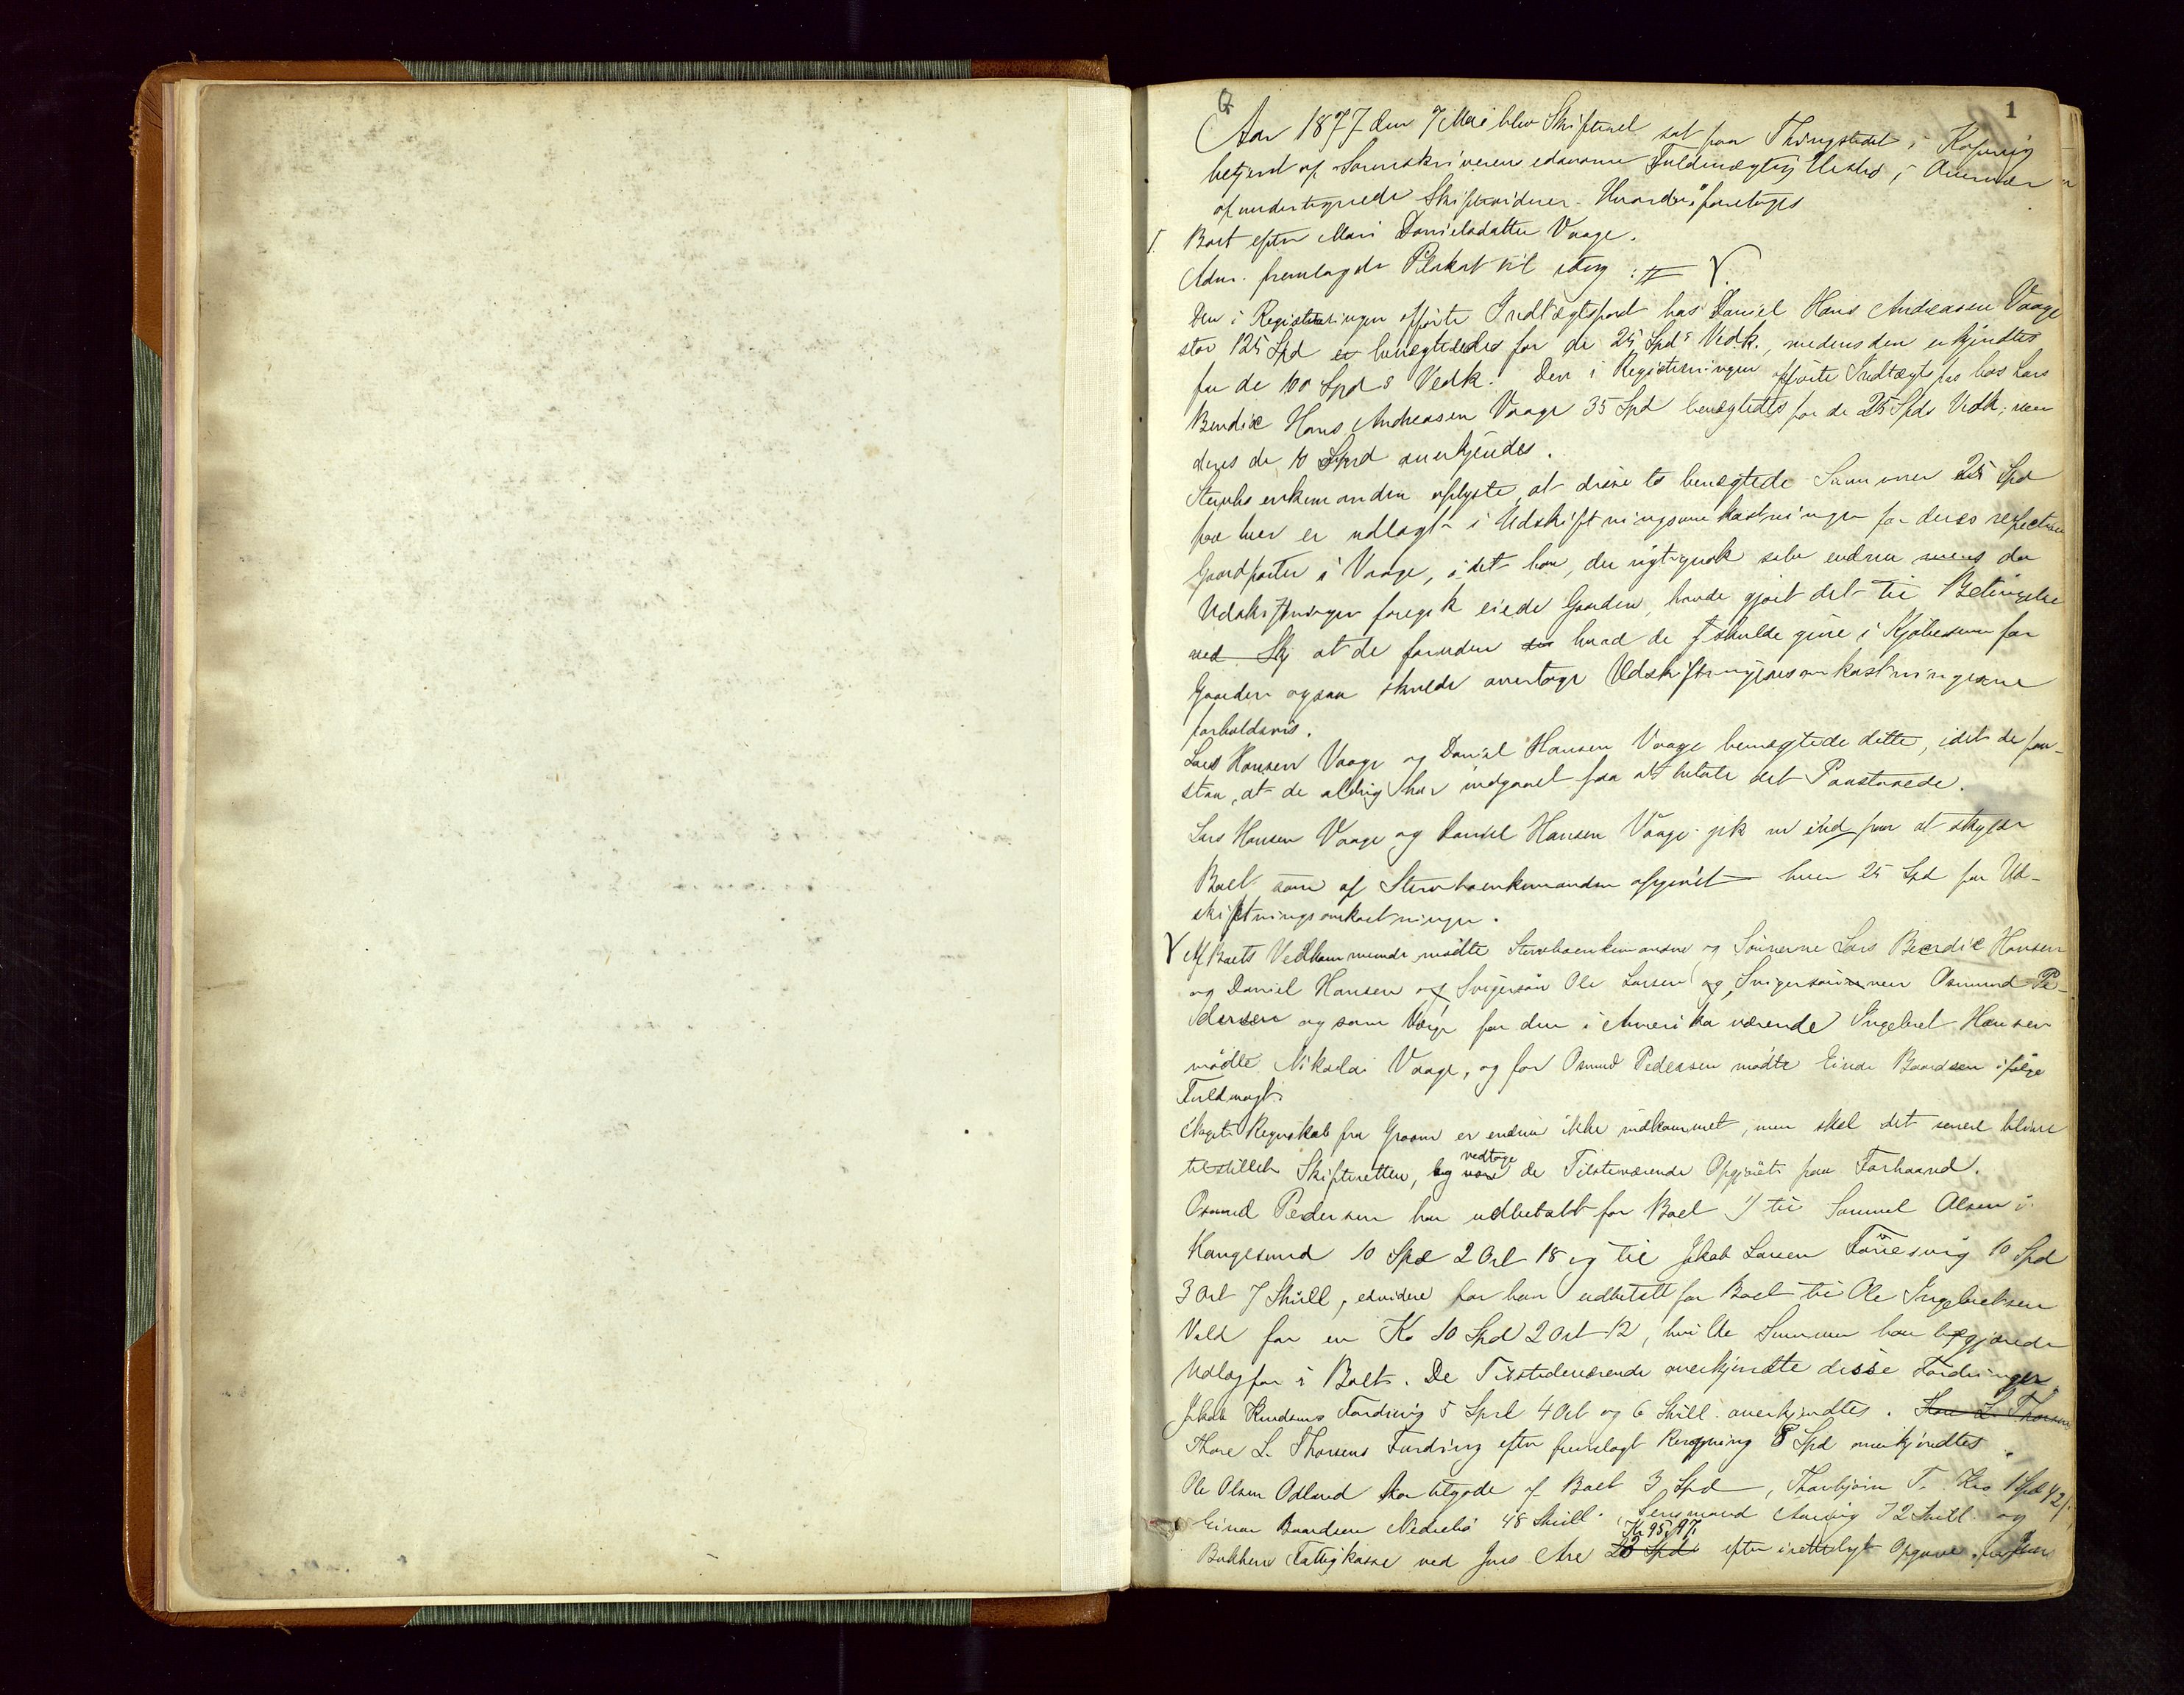 1
Aar 1877 den 7 Mai blev Skifteret sat paa Thingstedet i Kopervig
betjent af Sorenskriveren edsvorne Fuldmægtig i Overvær
af undertegnede Skiftevidner. Hvorda foretoges
I. Boet efter Mari Danielsdatter Vaage.
Adm. fremlagde Plakat til
Den i Registreringen opførte Indtægtspost hos Daniel Hans Andreasen Vaage
stor 125 Spd er benægtedes for de 25 Spds Vedk., medens den erkjendtes
for de 100 Spds Vedk. Den i Registreringen opførte Indtægtspost hos Lars
Bendix Hans Andreasen Vaage 35 Spd benægtedes for de 25 Spds Vedk., men
deres de 10 Spd anerkjendes.
Stervboenkemanden oplyste, at disse to benægtede Summer 25 Spd
paa hver er udlagt i Udskiftningsomkostninger for deres respective
Gaardparter i Vaage, idet han, der rigtignok selv endnu mens da
Udskiftningen foregik eiede Gaarden, havde gjort det til Betingelse
ved Skj at de foruden hvad de skulde give i Kjøbesum for
Gaarden ogsaa skulde overtage Udskiftningsomkostningerne
forholdsvis.
Lars Hansen Vaage og Daniel Hansen Vaage benægtede dette, idet de paa-
staa, at de aldrig har indgaaet paa at betale det Paastaaede.
Lars Hansen Vaage og Daniel Hansen Vaage gik nu ind paa at skylde
Boet som af Stervboenkemanden opgivet hver 25 Spd for Ud-
skiftningsomkostninger.
Af Boets Vedkommende mødte Stervboenkemanden og Sønnerne Lars Bendix Hansen
og Daniel Hansen og Svigersøn Ole Larsen og Svigersønnen Osmund Pe-
dersen og som Værge for den i Amerika værende Ingebret Hansen
mødte Nikolai Vaage, og for Osmund Pedersen mødte Einar Baardsen ifølge
Fuldmagt.
Noget Regnskab fra Groom er endnu ikke indkommet, men skal det senere blive
tilstillet Skifteretten, og vedtage de Tilstedeværende Opgjøret paa Forhaand.
Osmund Pedersen har udbetalt for Boet 1/ til Samuel Olsen i
Haugesund 10 Spd 2 Ort 18 og til Jakob Larsen Førresvig 10 Spd
3 Ort 7 Skill, endvidere har han udbetalt for Boet til Ole Ingebretsen
Vald for en Ko 10 Spd 2 Ort 12, hvilke Summer han begjærede
Udlæg for i Boet. De Tilstedeværende anerkjendte disse Fordringer.
Jakob Knudsens Fordring 5 Spd 4 Ort og 6 Skill. anerkjendtes. Thore L. Thorsens
Thore L. Thorsens Fordring efter fremlagt Regning 8 Spd anerkjendtes.
Ole Olsen Odland har tilgode af Boet 3 Spd, Thorbjørn T. 1 Spd 42/
Einar Baardsen Nedrebø 48 Skill. Lensmand 72 Skill og
Kr 95,97.
Bukkens Fattigkasse ved Jens Are 23 Spd efter irettelagt Opgave